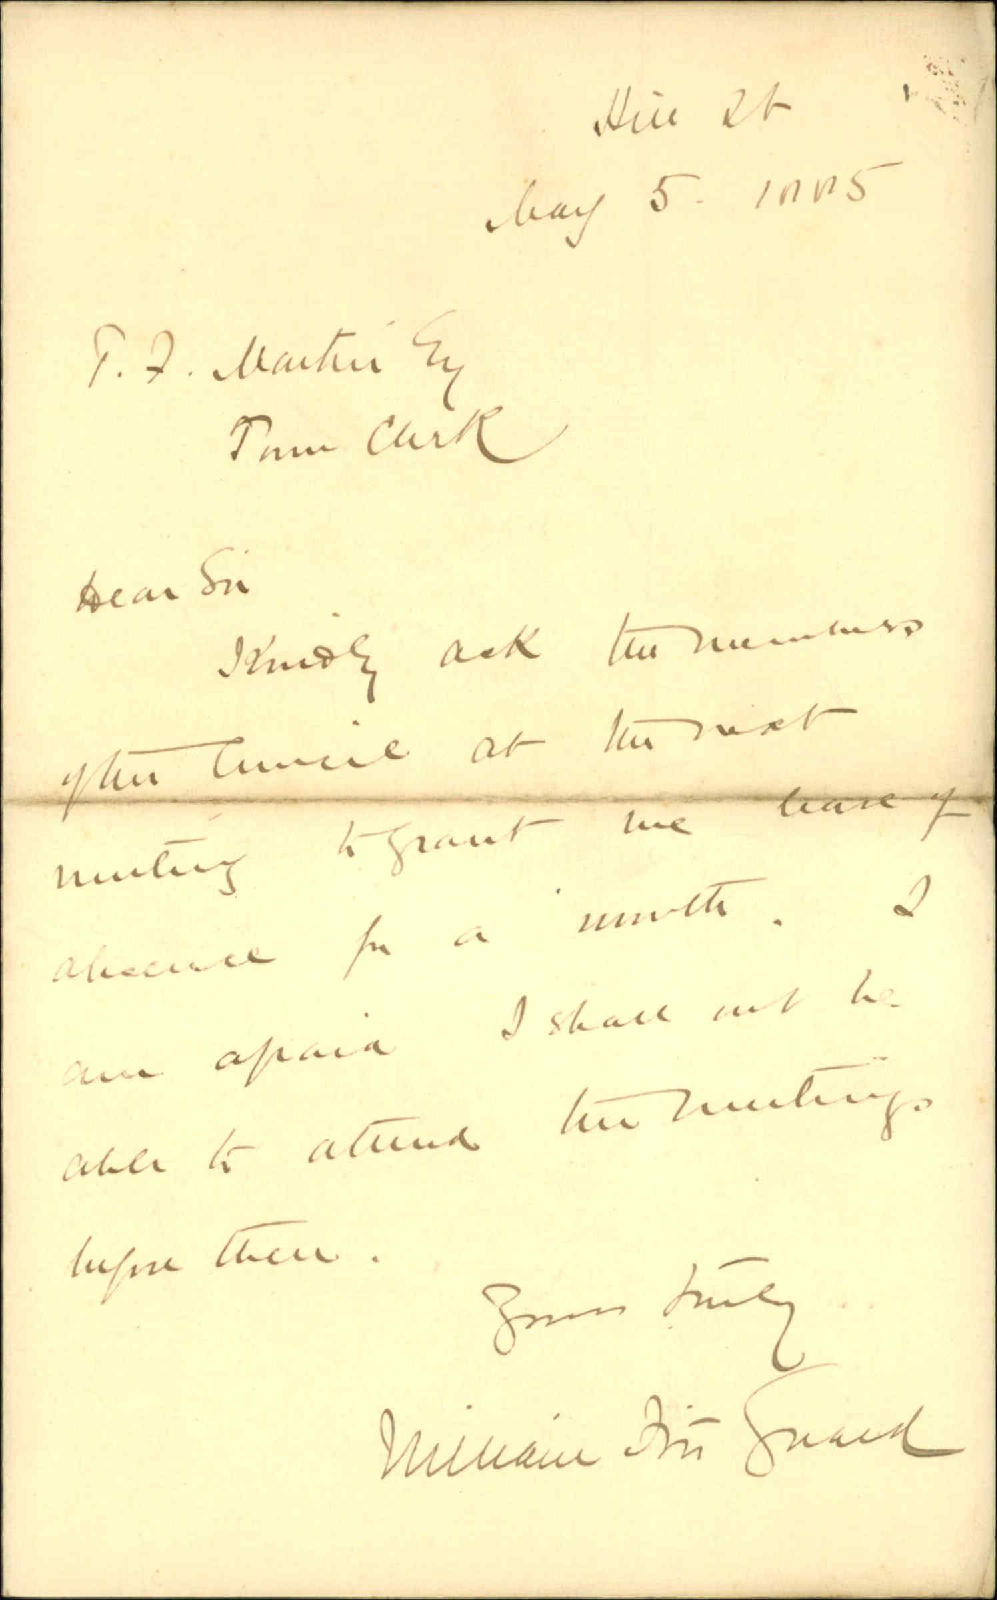 Hill St
May 5. 1885
T. F. Martin Esq
Town Clerk
Dear Sir
Kindly ask the members
of the Council at the next
meeting to grant me leave of
absence for a month. I
am afraid I shall not be
able to attend the meetings
before then.
Yours truly
William Fitz Gerald